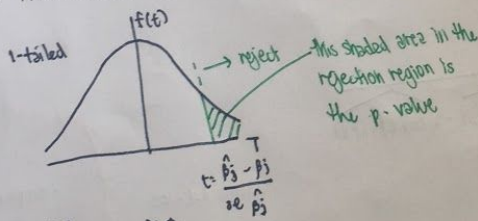 f(t)
1-tailed
→ reject
This shaded area in the
rejection region is
the p-value
T
t = β̂j - βj
se β̂j